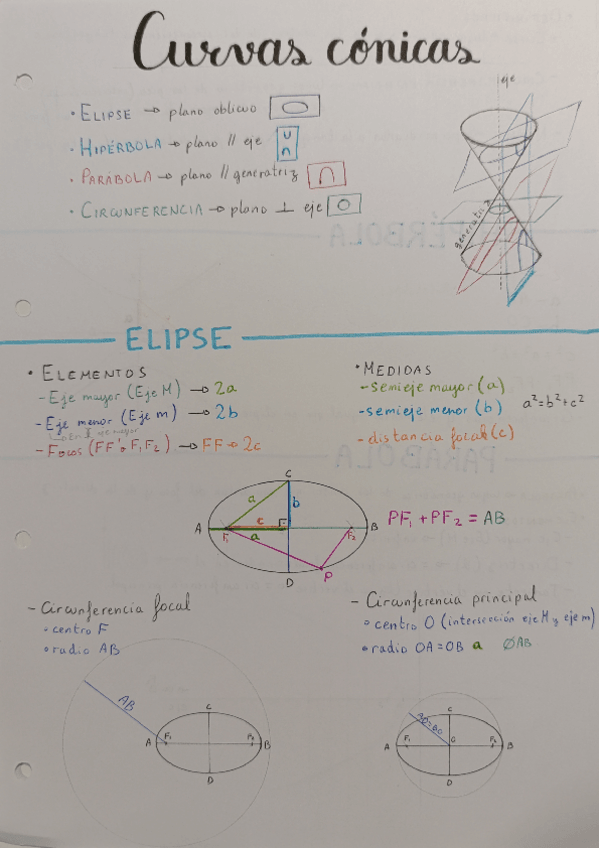 Curvas cónicas
eje
· ELIPSE → plano oblicuo
· HIPÉRBOLA → plano // eje
· PARÁBOLA → plano // generatriz
· CIRCUNFERENCIA → plano ⊥ eje
generatriz
ELIPSE
· ELEMENTOS
- Eje mayor (Eje M) → 2a
- Eje menor (Eje m) → 2b
- Focos (FF' o F₁F₂) → FF = 2c
· MEDIDAS
- semieje mayor (a)
- semieje menor (b)
- distancia focal (c)
a²=b²+c²
C
a
b
A
F₁
c
a
F₂
B
D
P
PF₁ + PF₂ = AB
- Circunferencia focal
• centro F
• radio AB
- Circunferencia principal
• centro O (intersección eje M y eje m)
• radio OA = OB a ∅AB
AB
C
A
F₁
F₂
B
D
AO=BO
C
A
F₁
O
F₂
B
D